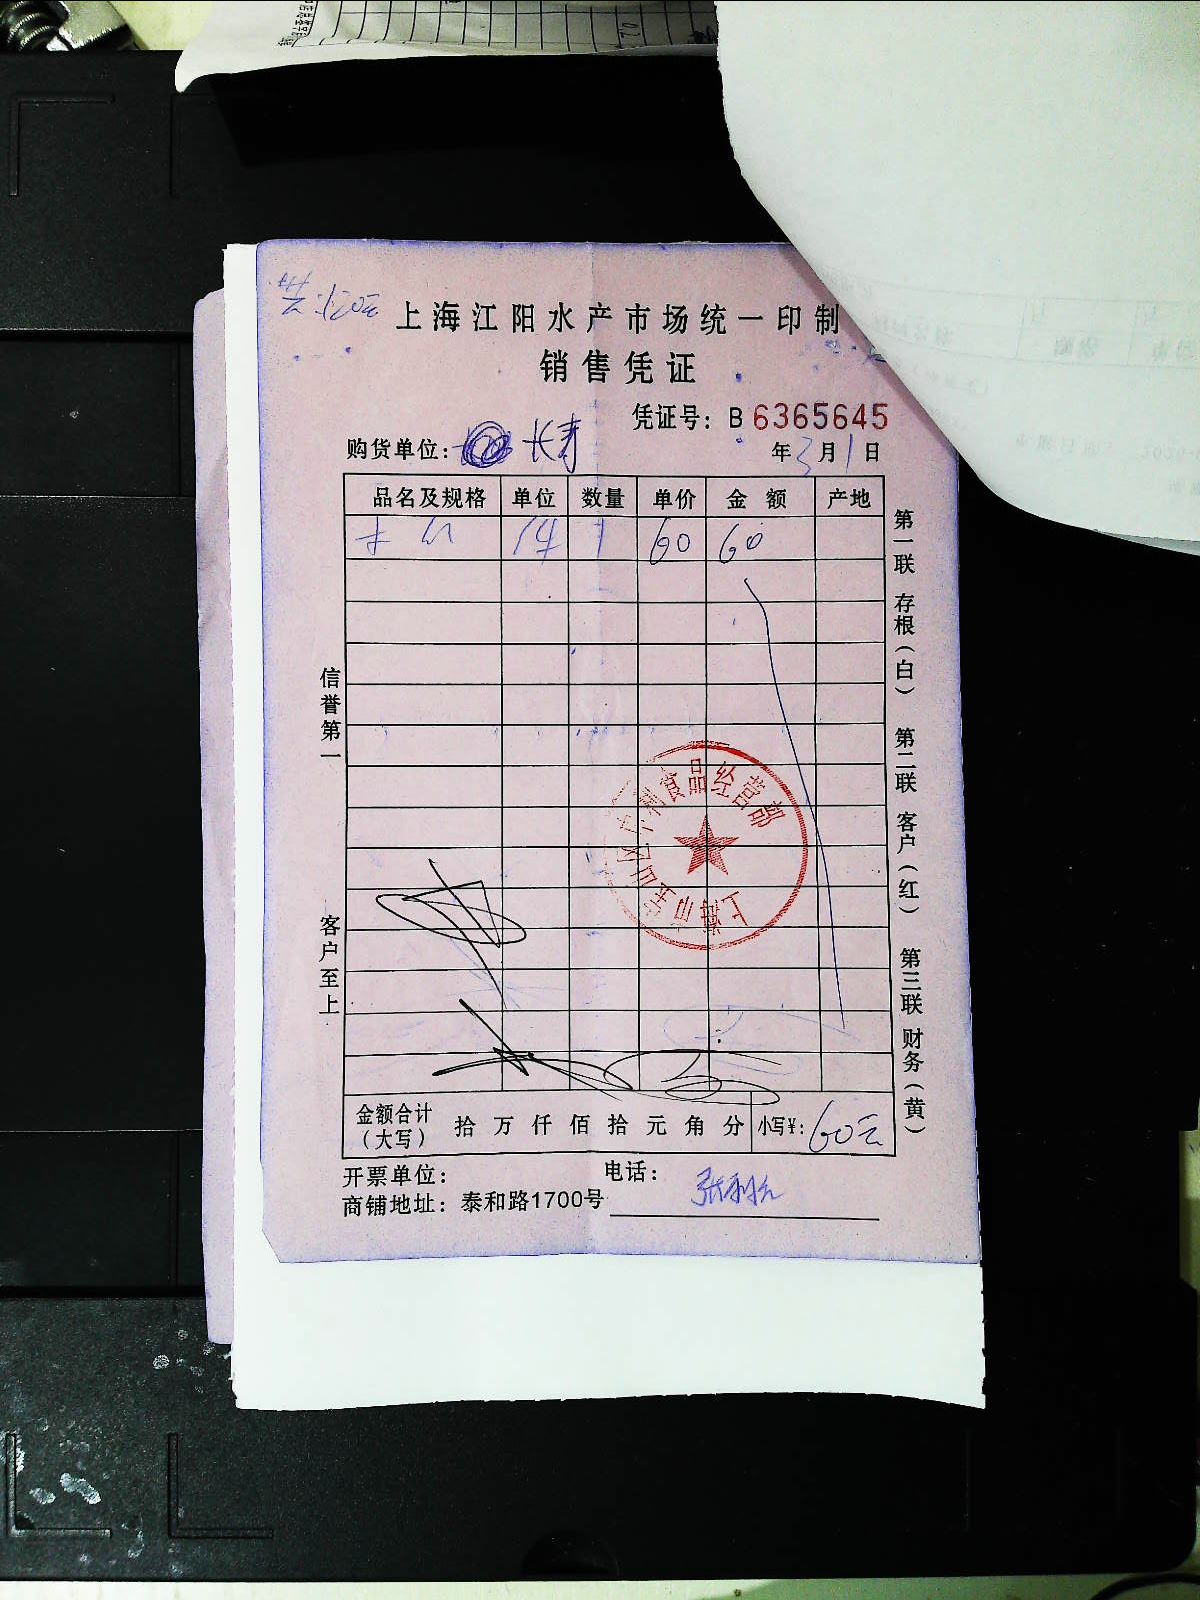 上海江阳水产市场统一印制
销售凭证
凭证号: B 6365645
购货单位: 长青 年3月1日
品名及规格 单位 数量 单价 金额 产地
1件 1 60 60
信誉第一
客户至上
第一联 存根(白) 第二联 客户(红) 第三联 财务(黄)
上海市宝山区中利食品经营部
金额合计(大写) 拾 万 仟 佰 拾 元 角 分 小写¥: 60元
开票单位: 电话:
商铺地址: 泰和路1700号